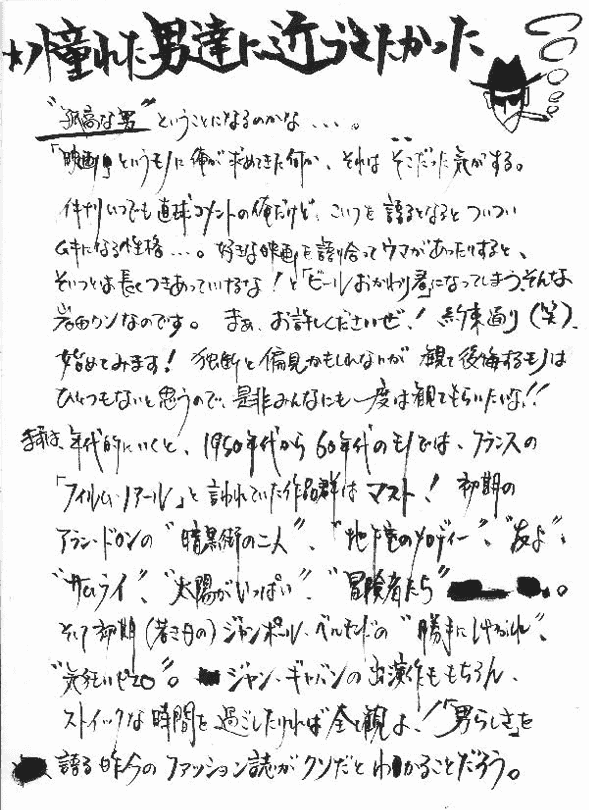 ★憧れた男達に近づきたかった
“孤高な男”ということになるのかな...。
「映画」というモノに俺が求めてきた何か、それはそこだった気がする。
何かいつでも直球コメントの俺だけど、こいつを語るとなるとついつい
ムキになる性格...。好きな映画を語り合ってウマがあったりすると、
そいつとは長くつきあっていけるな!と「ビールおかわり君」になってしまう、そんな
岩田クンなのです。まぁ、お許しくださいゼ!約束通り(笑)、
始めてみます!独断と偏見かもしれないが観て後悔するモノは
ひとつもないと思うので、是非みんなにも一度は観てもらいたいな!!
まずは、年代的にいくと、1950年代から60年代のモノでは、フランスの
「フィルム・ノアール」と言われていた作品群はマスト!初期の
アラン・ドロンの“暗黒街の二人”、“地下室のメロディー”、“友よ”、
“サムライ”、“太陽がいっぱい”、“冒険者たち”。
そして初期(若き日の)ジャンポール・ベルモンドの“勝手にしやがれ”、
“気狂いピエロ”。ジャン・ギャバンの出演作ももちろん、
ストイックな時間を過ごしたければ全て観よ!「男らしさ」を
語る昨今のファッション誌がクソだとわかることだろう。